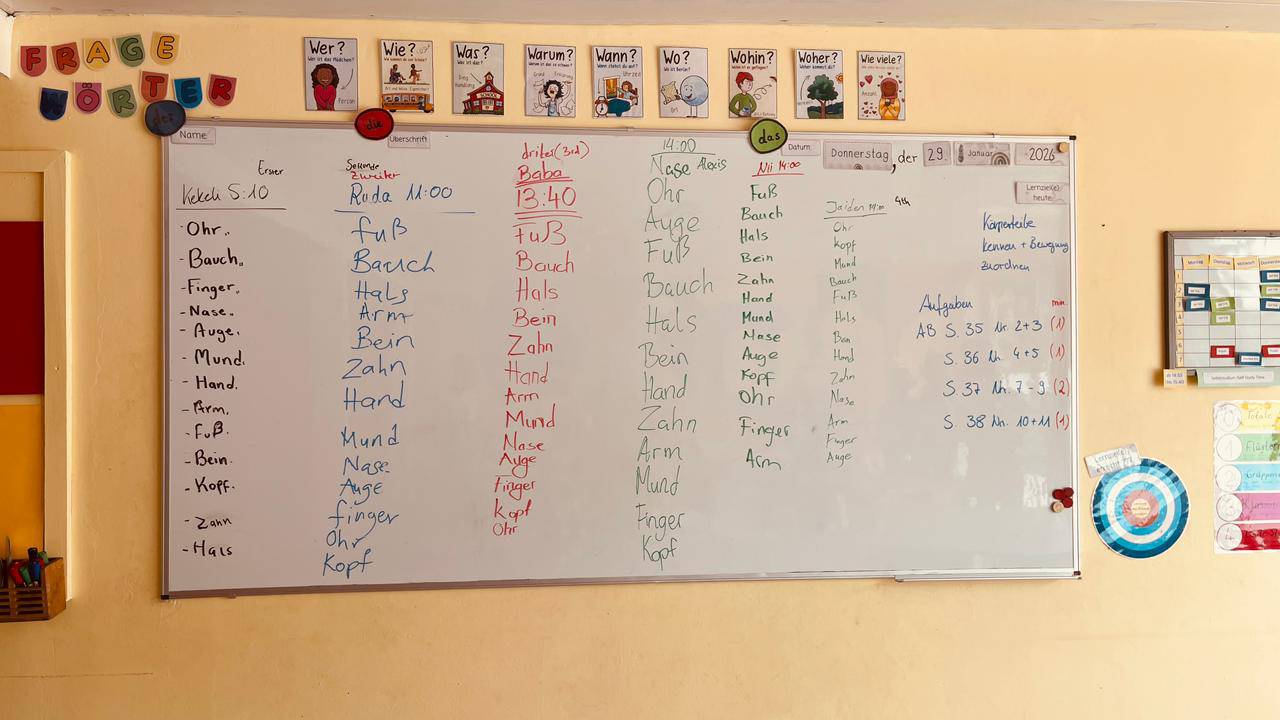 FRAGE
WÖRTER
Wer?
Wer ist das Mädchen?
Person
Wie?
Was?
Ding
Handlung
Warum?
Warum ist das so schwer?
Grund
Erklärung
Wann?
Wann stehst du auf?
Uhrzeit
Wo?
Wo ist Berlin?
Ort
Wohin?
Woher?
Wie viele?
Anzahl
der
die
das
Name
Überschrift
Datum
Donnerstag, der 29. Januar 2026
Lernziel(e) heute:
Erster
Kekeli 5:10
- Ohr..
- Bauch..
- Finger..
- Nase..
- Auge.
- Mund.
- Hand.
- Arm.
- Fuß.
- Bein.
- Kopf.
- Zahn
- Hals
zweiter
Ruda 11:00
fuß
Bauch
Hals
Arm
Bein
Zahn
Hand
Mund
Nase
Auge
finger
Ohr
Kopf
driter (3rd)
Baba
13:40
Fuß
Bauch
Hals
Bein
Zahn
Hand
Arm
Mund
Nase
Auge
Finger
Kopf
Ohr
14:00
Nase Alexis
Ohr
Auge
Fuß
Bauch
Hals
Bein
Hand
Zahn
Arm
Mund
Finger
Kopf
Nii 14:00
Fuß
Bauch
Hals
Bein
Zahn
Hand
Mund
Nase
Auge
Kopf
Ohr
Finger
Arm
Jaiden 4th
Ohr
Kopf
Mund
Bauch
Fuß
Hals
Hand
Zahn
Nase
Arm
Finger
Auge
Körperteile
kennen + Bewegung
zuordnen
Aufgaben min.
AB S. 35 Nr. 2+3 (1)
S. 36 Nr. 4+5 (1)
S. 37 Nr. 7-9 (2)
S. 38 Nr. 10+11 (1)
Montag
Dienstag
Mittwoch
0
1
2
3
4